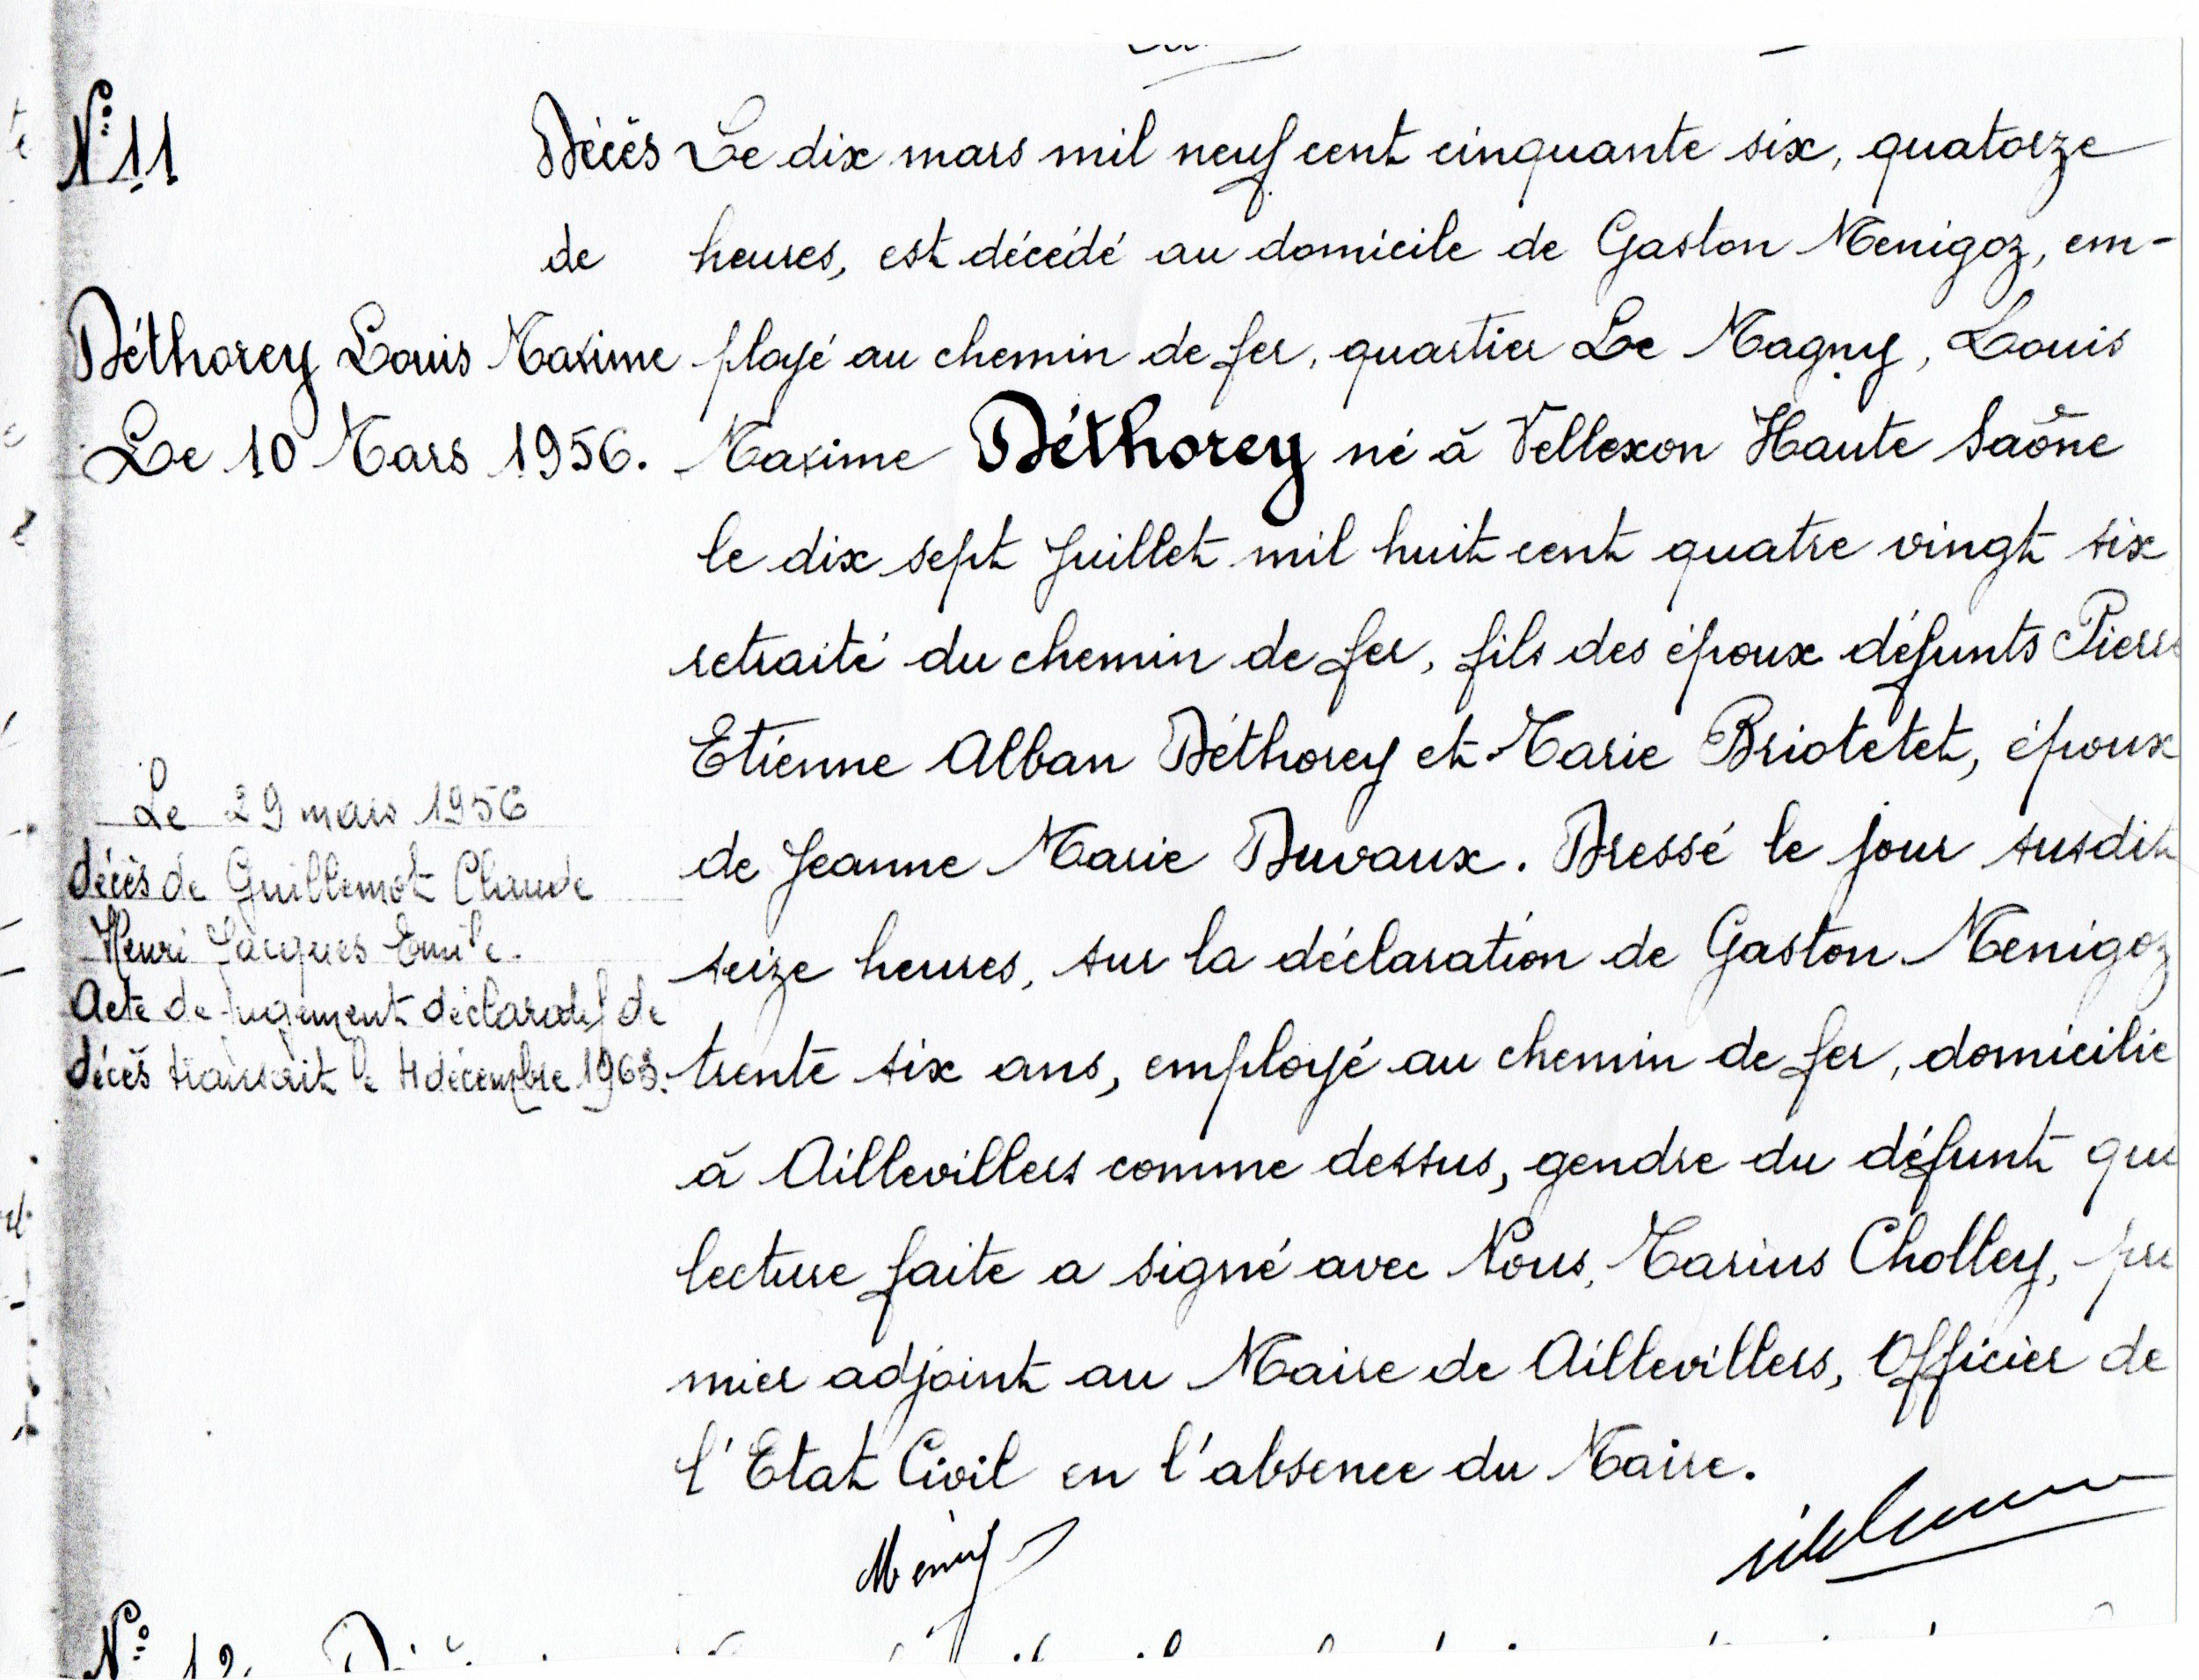 N° 11
Décès
de
Déthorey Louis Maxime
Le 10 Mars 1956.
Le dix mars mil neuf cent cinquante six, quatorze
heures, est décédé au domicile de Gaston Menigoz, em-
ployé au chemin de fer, quartier Le Magny, Louis
Maxime Déthorey né à Vellexon Haute Saône
le dix sept Juillet mil huit cent quatre vingt six
retraité du chemin de fer, fils des époux défunts Pierre
Etienne Alban Déthorey et Marie Briotetet, époux
de Jeanne Marie Duvaux. Dressé le jour susdit
seize heures, sur la déclaration de Gaston Menigoz
trente six ans, employé au chemin de fer, domicilié
à Aillevillers comme dessus, gendre du défunt qui
lecture faite a signé avec Nous, Marius Cholley, pre
mier adjoint au Maire de Aillevillers, Officier de
l'Etat Civil en l'absence du Maire.
Le 29 mars 1956
décès de Guillemot Claude
Henri Jacques Emile.
Acte de jugement déclaratif de
décès transcrit le 4 décembre 1963.
N° 12